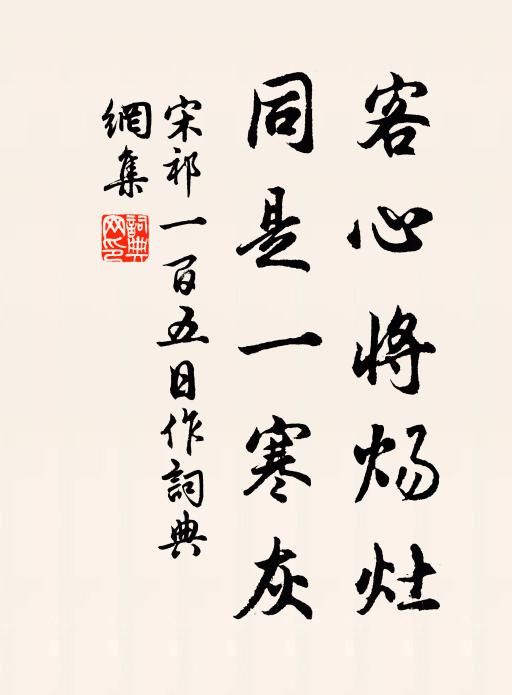 客心将炀灶
同是一寒灰
宋祁一百五日作詞典
網集
詞典網印